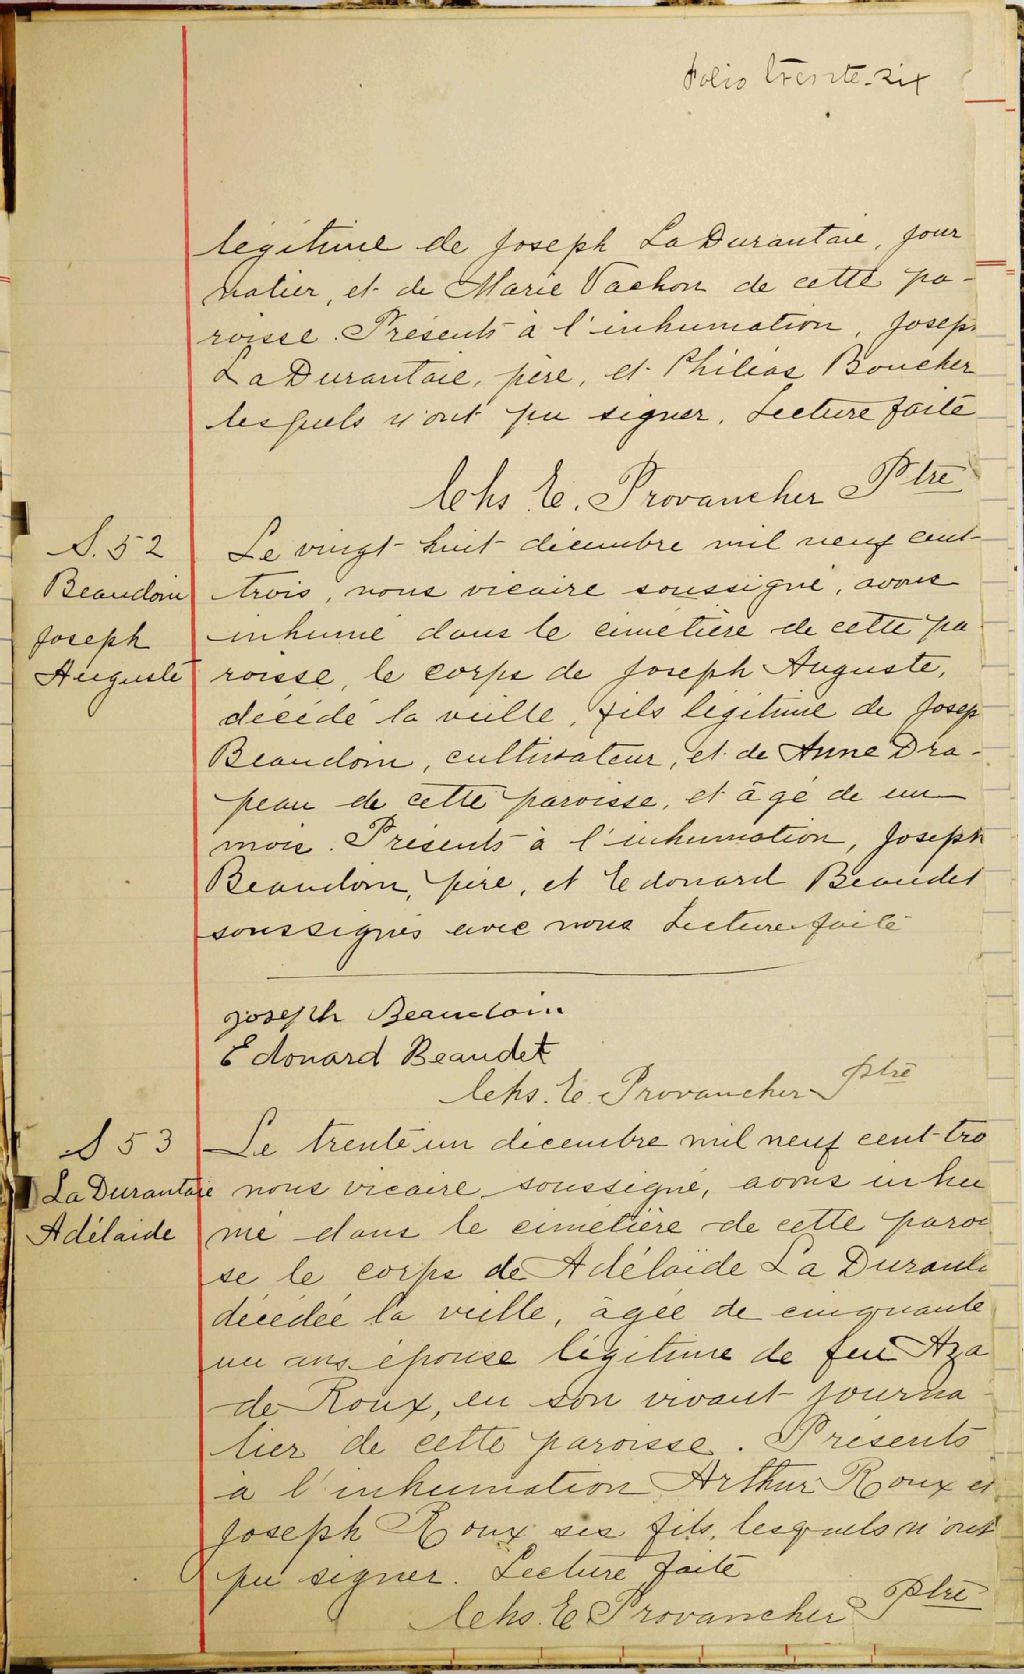 Folio trente-six
légitime de Joseph LaDurantaie, jour
nalier, et de Marie Vachon de cette pa-
roisse. Présents à l'inhumation, Joseph
LaDurantaie, père, et Philias Boucher
lesquels n'ont pu signer. Lecture faite
Chs. E. Provancher Ptre
S. 52
Beaudoin
Joseph
Auguste
Le vingt-huit décembre mil neuf cent-
trois, nous vicaire soussigné, avons
inhumé dans le cimetière de cette pa
roisse, le corps de Joseph Auguste,
décédé la veille, fils légitime de Josep
Beaudoin, cultivateur, et de Anne Dra-
peau de cette paroisse, et âgé de un
mois. Présents à l'inhumation, Joseph
Beaudoin, père, et Edouard Beaudet
soussignés avec nous Lecture faite
Joseph Beaudoin
Edouard Beaudet
Chs. E. Provancher Ptre
S 53
LaDurantaie
Adélaide
Le trente un décembre mil neuf cent-tro
nous vicaire soussigné, avons inhu
mé dans le cimetière de cette paroi
se le corps de Adélaïde La Durante
décédée la veille, âgée de cinquante
un ans épouse légitime de feu Aza
de Roux, en son vivant journa-
lier de cette paroisse. Présents
à l'inhumation Arthur Roux et
Joseph Roux ses fils, lesquels n'ont
pu signer. Lecture faite
Chs. E Provancher Ptre